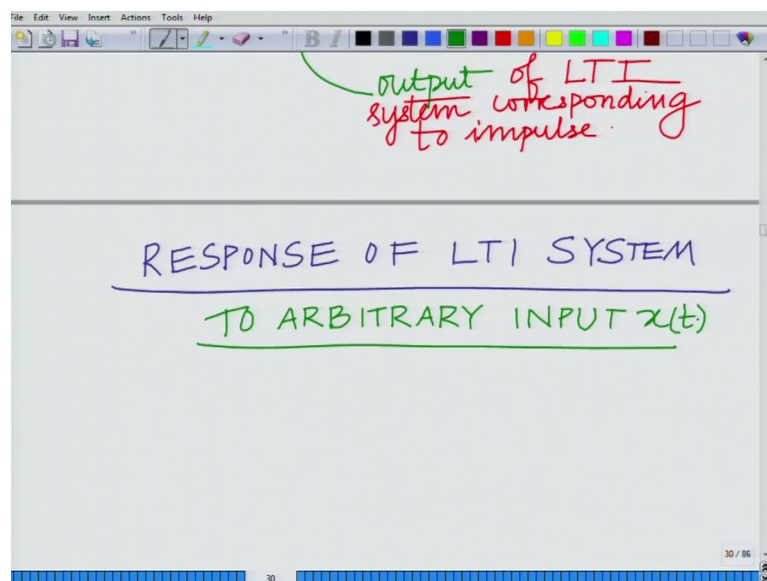 File Edit View Insert Actions Tools Help
output of LTI
system corresponding
to impulse.
RESPONSE OF LTI SYSTEM
TO ARBITRARY INPUT x(t)
30 / 86
30